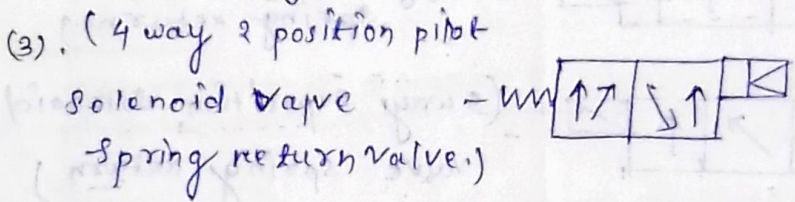 (3). (4 way 2 position pilot
solenoid vapve -
spring return valve.)